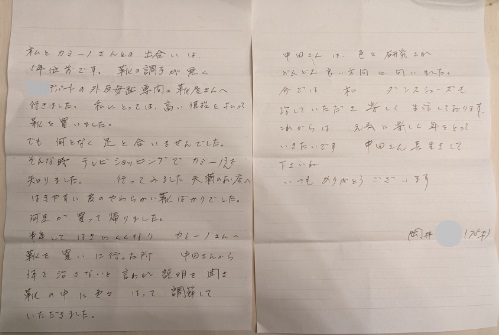 私とカミーノさんとの出合いは
1年位前です。靴の調子が悪く
デパートの外反母趾専門の靴屋さんへ
行きました。私にとっては、高い値段と思って
靴を買いました。
でも 何となく 足と合いませんでした。
そんな時 テレビショッピングで カミーノさんを
知りました。 行ってみました 天満のお店へ
はきやすい 皮のやわらかい靴ばかりでした。
何足か 買って帰りました。
カミーノさんへ
靴を 買いに行った所 中田さんから
体を 治さないと 言われ 説明を聞き
靴の中に色々 はって 調節して
いただきました。
中田さんは、色々研究され
どんどん良い方向に向いました。
今では 私 ダンスシューズも
していただき 楽しく 生活しております。
これからは 元気に楽しく 年をとって
いきたいです 中田さん 長生きして
下さいね
いつも ありがとう ございます
岡井